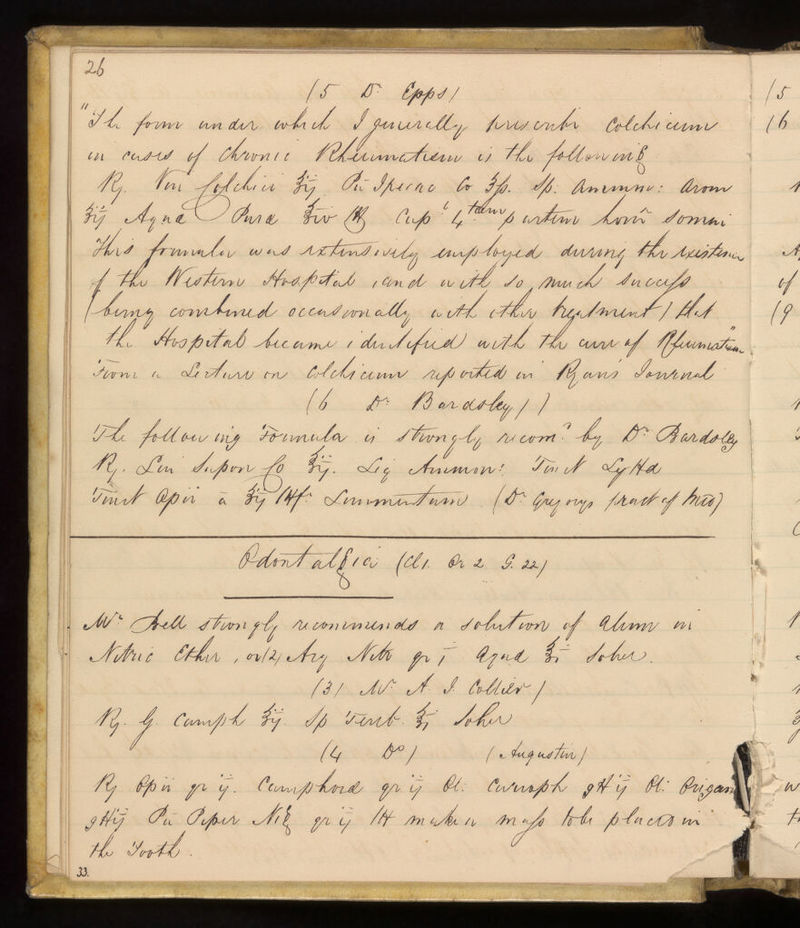 26
(5 Dr Epps)
"The form under which I generally prescribe Colchicum
in cases of Chronic Rheumatism is the following
Rx. Vin Colchici ʒij Pu Ipecac Co ʒfs. Sp. Ammon: Arom
ʒij Aqua Pura ℥iv M Capt 4tam partem horâ Somni
This formula was extensively employed during the existence
of the Western Hospital, and with so much success
(being combined occasionally with other treatment) that
the Hospital became identified with the cure of Rheumatism"
From a Lecture on Colchicum reported in Ryans Journal
(6 Dr Bardsley)
The following Formula is strongly recomd by Dr Bardsley
Rx. Lin Sapon Co ℥ij. Liq Ammon: Tinct Lytta
Tinct Opii a ʒij Mft Linimentum (Dr Gregorys pract of Med)
Odontalgia (Cl1. Or 2 G. 22)
Mr Bell strongly recommends a solution of Alum in
Nitric Ether, or (2) Arg Nitr gr i Aqua ʒi Solve.
(3) Mr A. I. Collier)
Rx. G. Camph ʒij Sp Tereb. ℥i Solve
(4 Do) (Augustin)
Rx Opii gr ij. Camphora gr ij Ol: Caryoph gtt ij Ol: Origani
gtt ij Pu Piper Nig gr ij M make a mass to be placed in
the Tooth.
33.
(5
(6
of
(9